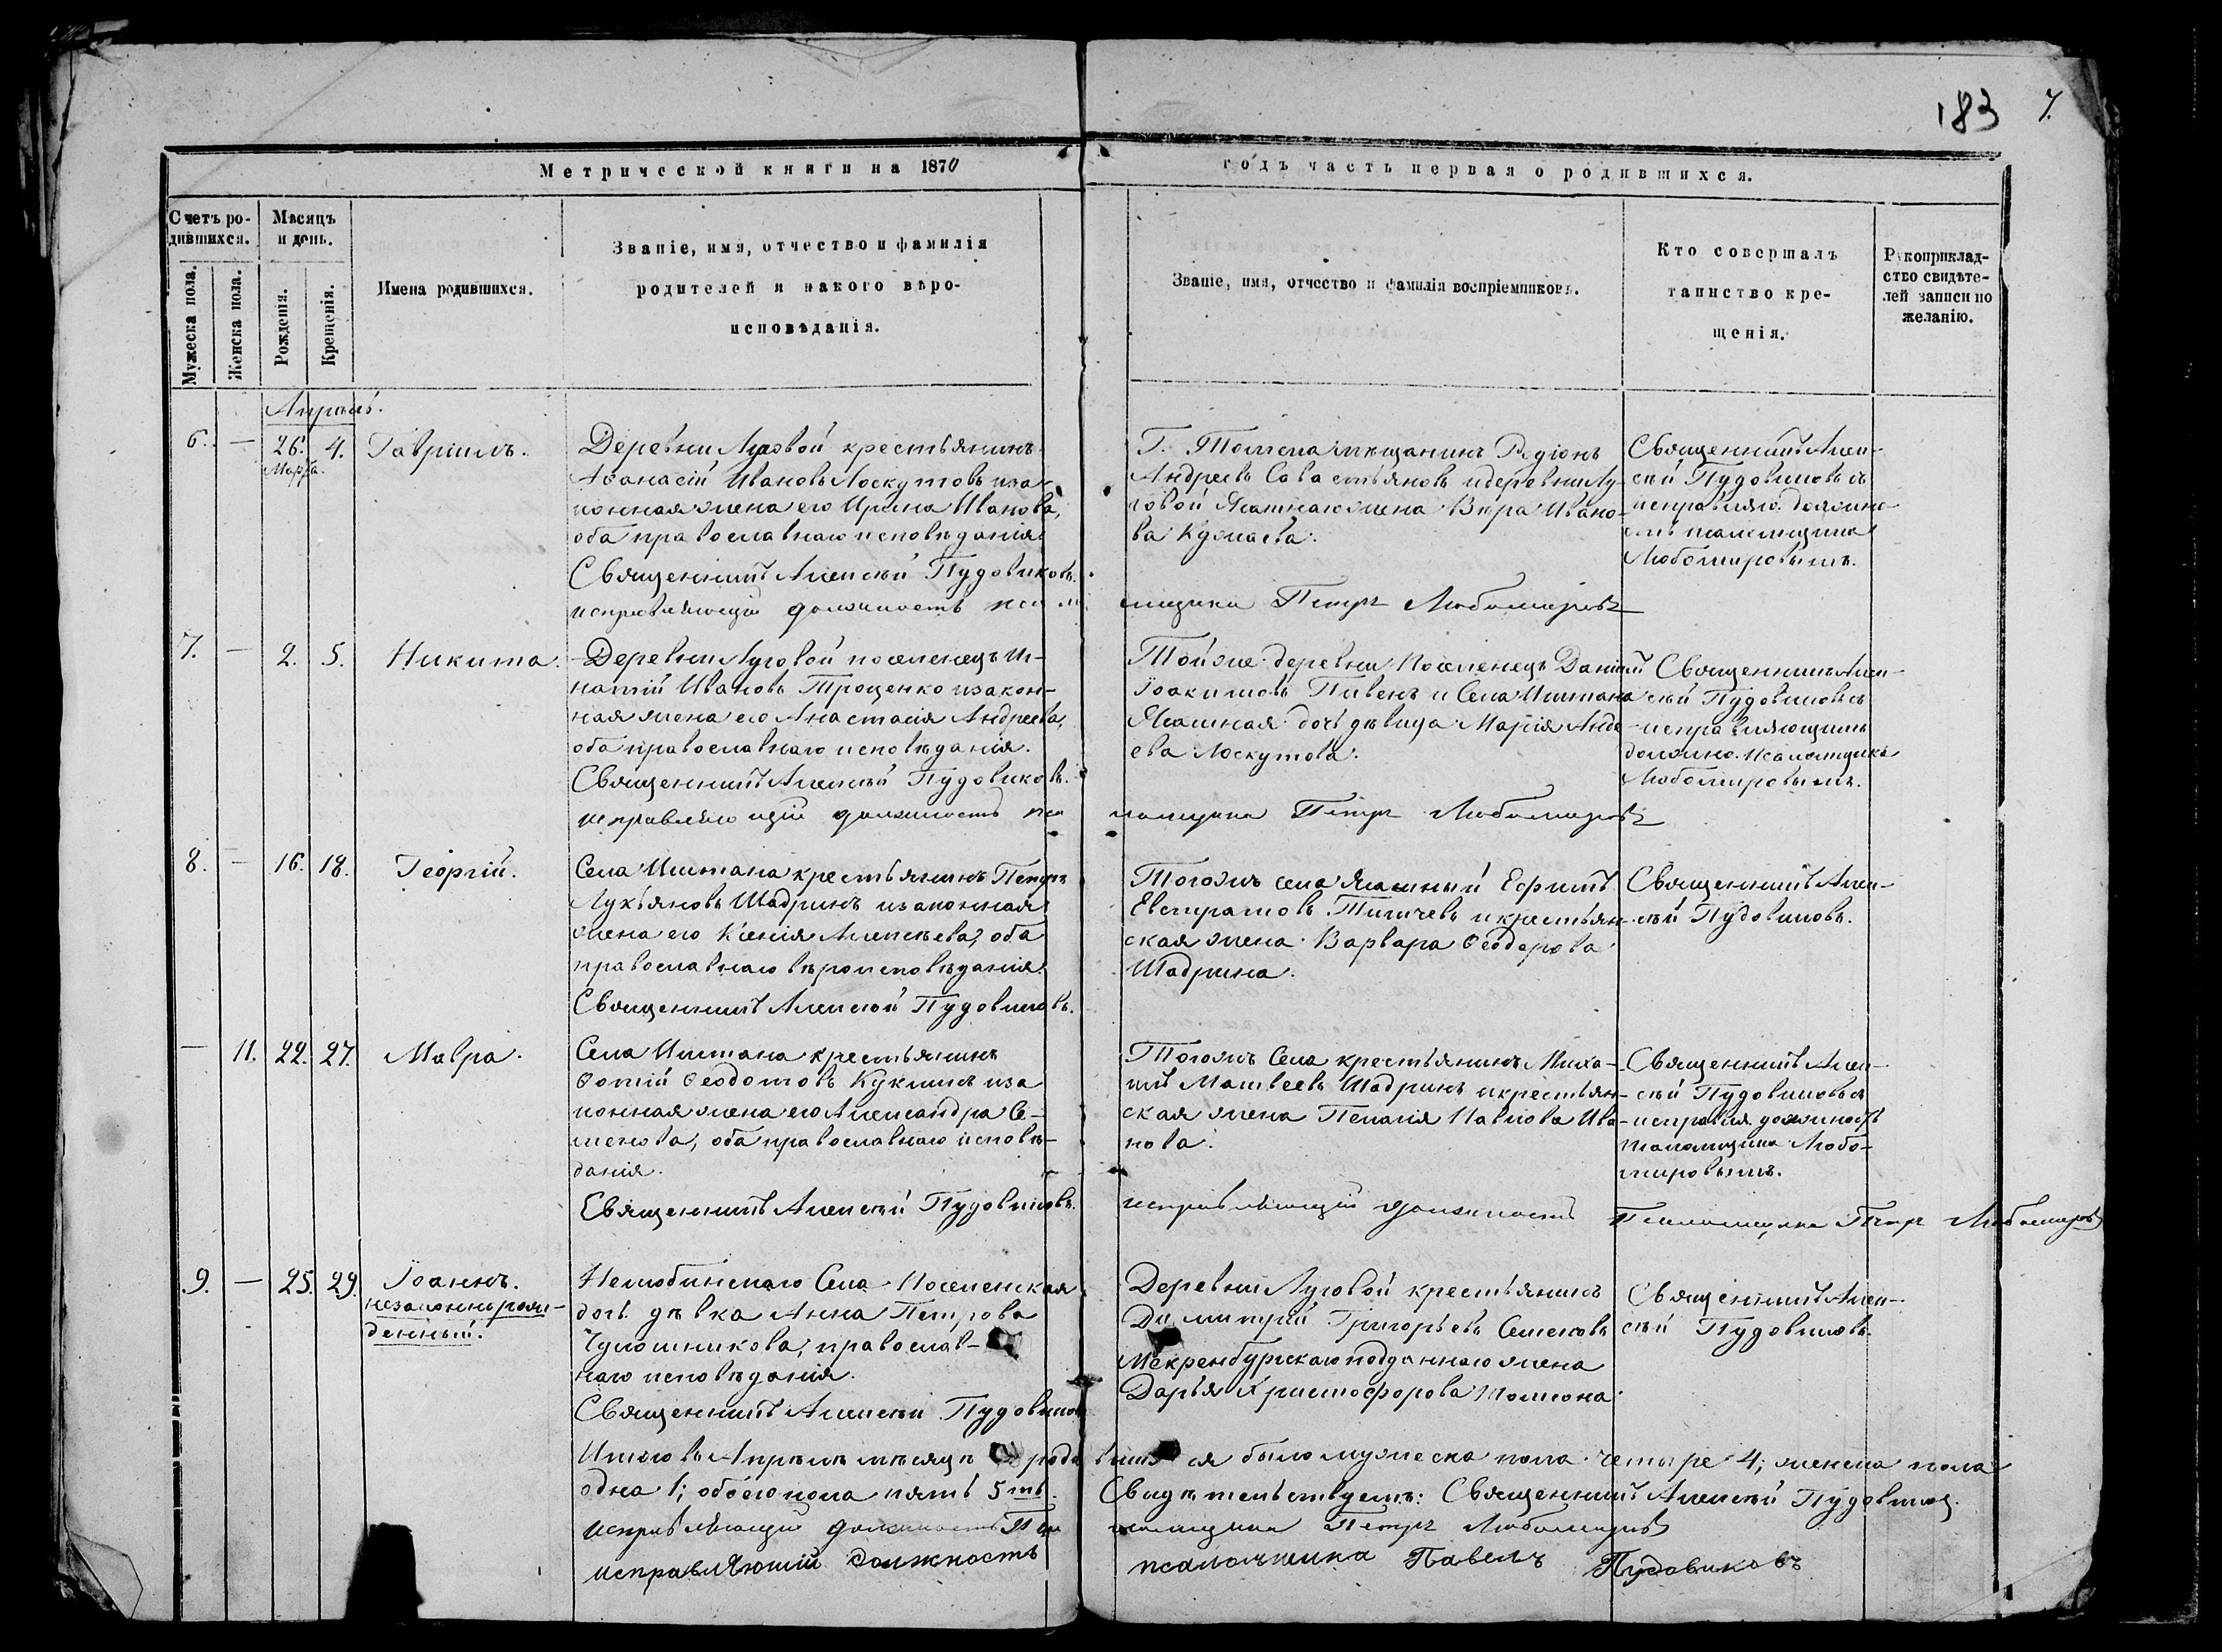 183 7.
Метрической книги на 1870
годъ часть первая о родившихся.
Счетъ родившихся.
Мужеска пола.
Женска пола.
Мѣсяцъ и день.
Рожденія.
Крещенія.
Имена родившихся.
Званіе, имя, отчество и фамилія
родителей и какого вѣро-
исповѣданія.
Званіе, имя, отчество и фамилія воспріемниковъ.
Кто совершалъ
таинство кре-
щенія.
Рукоприклад-
ство свидѣте-
лей записи по
желанію.
Апрѣль.
6. — 26. 4. Гавріилъ.
Марта.
Деревни Луговой крестьянинъ
Аѳанасій Ивановъ Лоскутовъ и за-
конная жена его Ирина Иванова,
оба православнаго исповѣданія.
Священникъ Алексѣй Пудовиковъ.
Г. Томска мѣщанинъ Родіонъ
Андреевъ Савастьяновъ и деревни Лу-
говой Ясашная жена Вѣра Ивано-
ва Кузмаева.
Священникъ Алек-
сѣй Пудовиковъ съ
исправляю. должно-
Любомировымъ.
исправляющій должность псаломщика Петръ Любомировъ
7. — 2. 5. Никита.
Деревни Луговой поселенецъ И-
натій Ивановъ Троценко и закон-
ная жена его Анастасія Андреева,
оба православнаго исповѣданія.
Священникъ Алексѣй Пудовиковъ.
Той же деревни Поселенецъ Даніилъ
Іоакимовъ Пивенъ и Села Иштана
Ясашная дочь дѣвица Марія Андре-
ева Лоскутова.
Священникъ Алек-
сѣй Пудовиковъ съ
исправляющимъ
должно. псаломщика
Любомировымъ.
исправляющій должность псаломщика Петръ Любомировъ
8. — 16. 18. Георгій.
Села Иштана крестьянинъ Петръ
Лукьяновъ Шадринъ и законная
жена его Ксенія Алексѣева, оба
православнаго вѣроисповѣданія.
Священникъ Алексѣй Пудовиковъ.
Тогожъ села Ясашный Ефимъ
Евстратовъ Тигичевъ и крестьян-
ская жена Варвара Ѳеодорова
Шадрина.
Священникъ Алек-
сѣй Пудовиковъ.
— 11. 22. 27. Мавра.
Села Иштана крестьянинъ
Ѳотій Ѳеодотовъ Куклинъ и за
конная жена его Александра Се-
менова, оба православнаго исповѣ-
данія.
Священникъ Алексѣй Пудовиковъ.
Тогожъ Села крестьянинъ Миха-
илъ Матвеевъ Шадринъ и крестьян-
ская жена Пелагія Павлова Ива-
нова.
Священникъ Алек-
сѣй Пудовиковъ съ
исправля. должность
псаломщика Любо-
мировымъ.
исправляющій должность Псаломщика Петръ Любомировъ
9. — 25. 29. Іоаннъ.
незаконнорож-
денный.
Нелюбинскаго Села Поселенская
дочь дѣвка Анна Петрова
Чугошникова, православ-
наго исповѣданія.
Священникъ Алексѣй Пудовиковъ
Деревни Луговой крестьянинъ
Димитрій Григорьевъ Семеновъ
Мекренбургскаго подданнаго жена
Дарья Христофорова
Священникъ Алек-
сѣй Пудовиковъ.
Итого въ Апрѣлѣ мѣсяцѣ родившихся было мужеска пола четыре 4; женска пола
одна 1; обоего пола пять 5ть. Свидѣтельствуемъ: Священникъ Алексѣй Пудовиков.
исправляющій должность Псаломщика Петръ Любомировъ
исправляющій должность псаломщика Павелъ Пудовиковъ